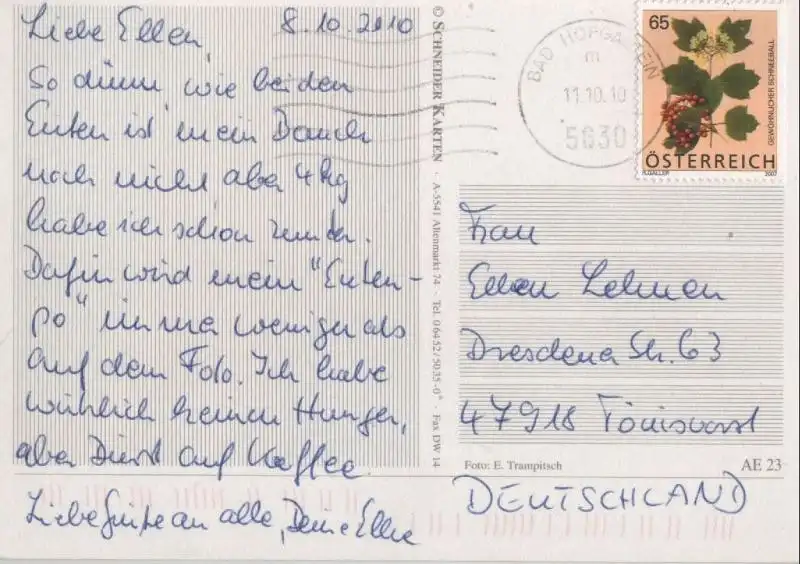 Liebe Ellen, 8.10.2010
So dünn, wie bei den
Enten ist mein Bauch
noch nicht, aber 4 kg
habe ich schon runter.
Dafür wird mein "Enten-
po" immer weniger als
auf dem Foto. Ich habe
wirklich keinen Hunger,
aber Durst auf Kaffee.
Liebe Grüße an alle, Deine Elke
© SCHNEIDER KARTEN · A-5541 Altenmarkt 74 · Tel. 06452/5035-0* · Fax DW 14
BAD HOFGASTEIN
m
11.10.10
5630
65
GEWÖHNLICHER SCHNEEBALL
ÖSTERREICH
2007
Frau
Ellen Lehnen
Dresdener Str. 63
47918 Tönisvorst
Foto: E. Trampitsch AE 23
DEUTSCHLAND